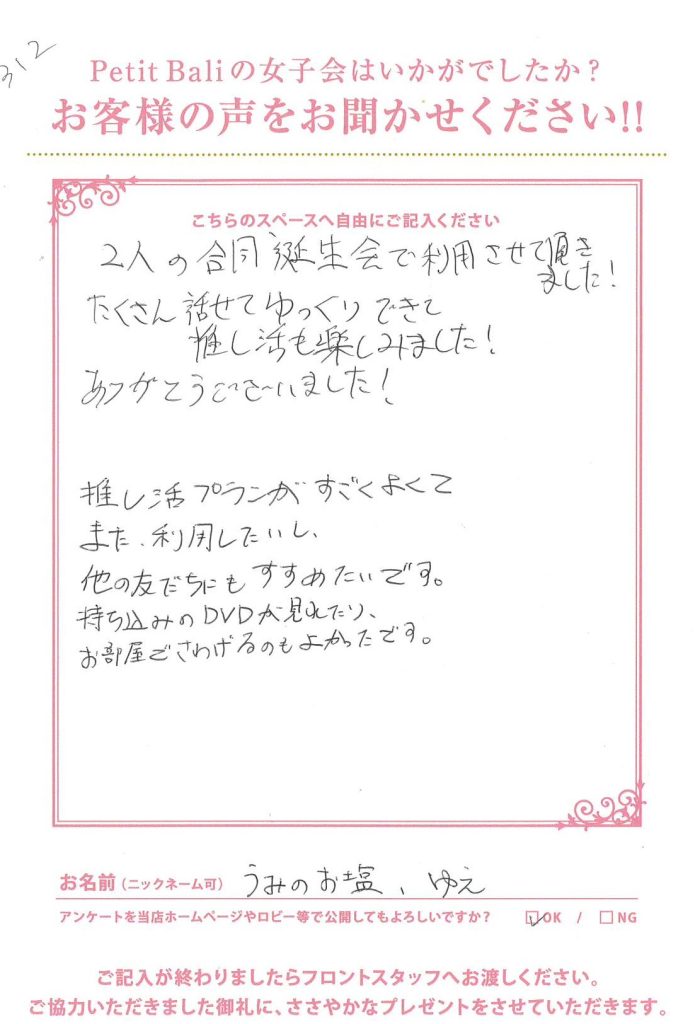 312
Petit Baliの女子会はいかがでしたか？
お客様の声をお聞かせください!!
こちらのスペースへ自由にご記入ください
2人の合同誕生会で利用させて頂き
ました！
たくさん話せてゆっくりできて
推し活も楽しみました！
ありがとうございました！
推し活プランがすごくよくて
また、利用したいし、
他の友だちにもすすめたいです。
持ち込みのDVDが見れたり、
お部屋でさわげるのもよかったです。
お名前（ニックネーム可） うみのお塩、ゆえ
アンケートを当店ホームページやロビー等で公開してもよろしいですか？ ☑OK / □NG
ご記入が終わりましたらフロントスタッフへお渡しください。
ご協力いただきました御礼に、ささやかなプレゼントをさせていただきます。